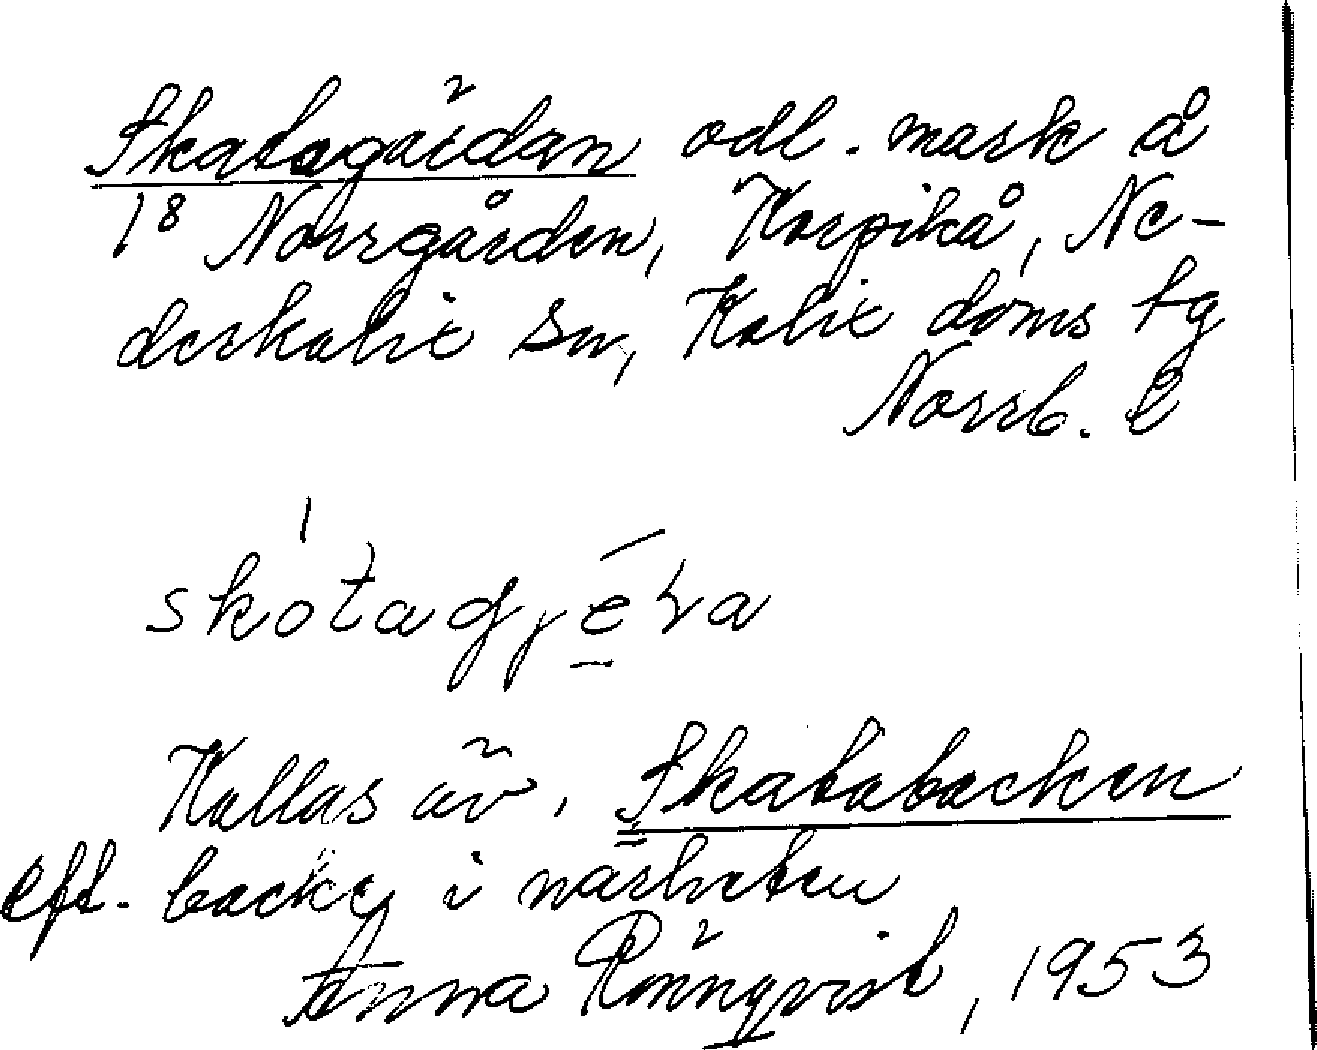 Skatagärdan odl. mark å
1⁸ Norrgården, Korpikå, Ne-
derkalix sn, Kalix doms tg
Norrb. l
skótagjéra
Kallas äv. Skatabacken
eft. backe i närheten
Anna Rönnqvist, 1953